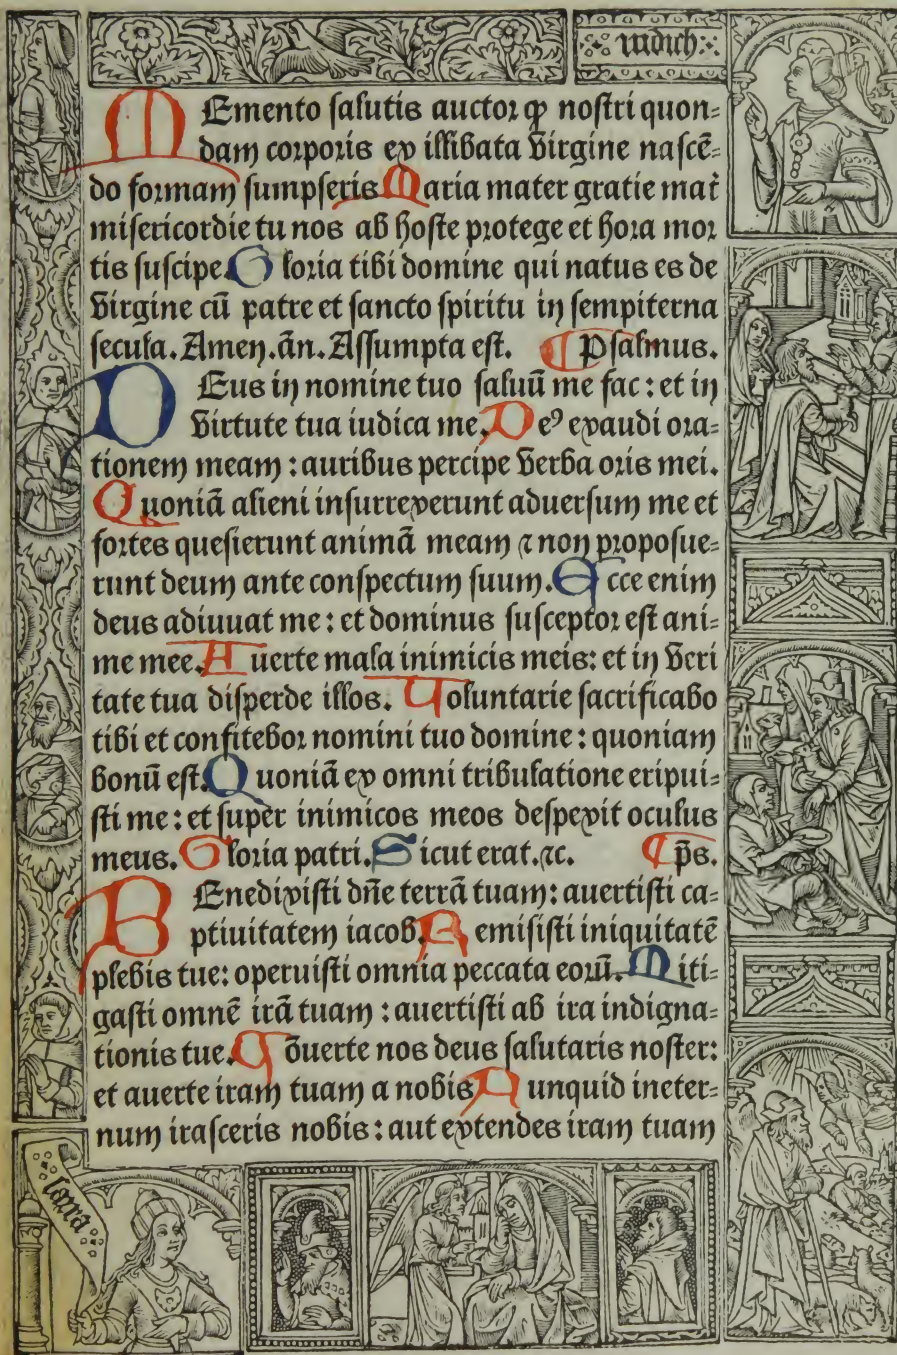 iudich
Memento salutis auctor ꝙ nostri quon=
dam corporis ex illibata virgine nascē=
do formam sumpseris Maria mater gratie mat̄
misericordie tu nos ab hoste protege et hora mor
tis suscipe. Gloria tibi domine qui natus es de
virgine cū patre et sancto spiritu in sempiterna
secula. Amen. ān. Assumpta est. ¶ Psalmus.
DEus in nomine tuo saluū me fac: et in
virtute tua iudica me. Deꝰ exaudi ora=
tionem meam: auribus percipe verba oris mei.
Quoniā alieni insurrexerunt aduersum me et
fortes quesierunt animā meam ⁊ non proposue=
runt deum ante conspectum suum. Ecce enim
deus adiuuat me: et dominus susceptor est ani=
me mee. Auerte mala inimicis meis: et in veri
tate tua disperde illos. Voluntarie sacrificabo
tibi et confitebor nomini tuo domine: quoniam
bonū est. Quoniā ex omni tribulatione eripui=
sti me: et super inimicos meos despexit oculus
meus. Gloria patri. Sicut erat. ⁊c. ¶ p̄s.
BEnedixisti dn̄e terrā tuam: auertisti ca=
ptiuitatem iacob. Remisisti iniquitatē
plebis tue: operuisti omnia peccata eorū. Miti=
gasti omnē irā tuam: auertisti ab ira indigna=
tionis tue. Cōuerte nos deus salutaris noster:
et auerte iram tuam a nobis Nunquid ineter=
num irasceris nobis: aut extendes iram tuam
sarra